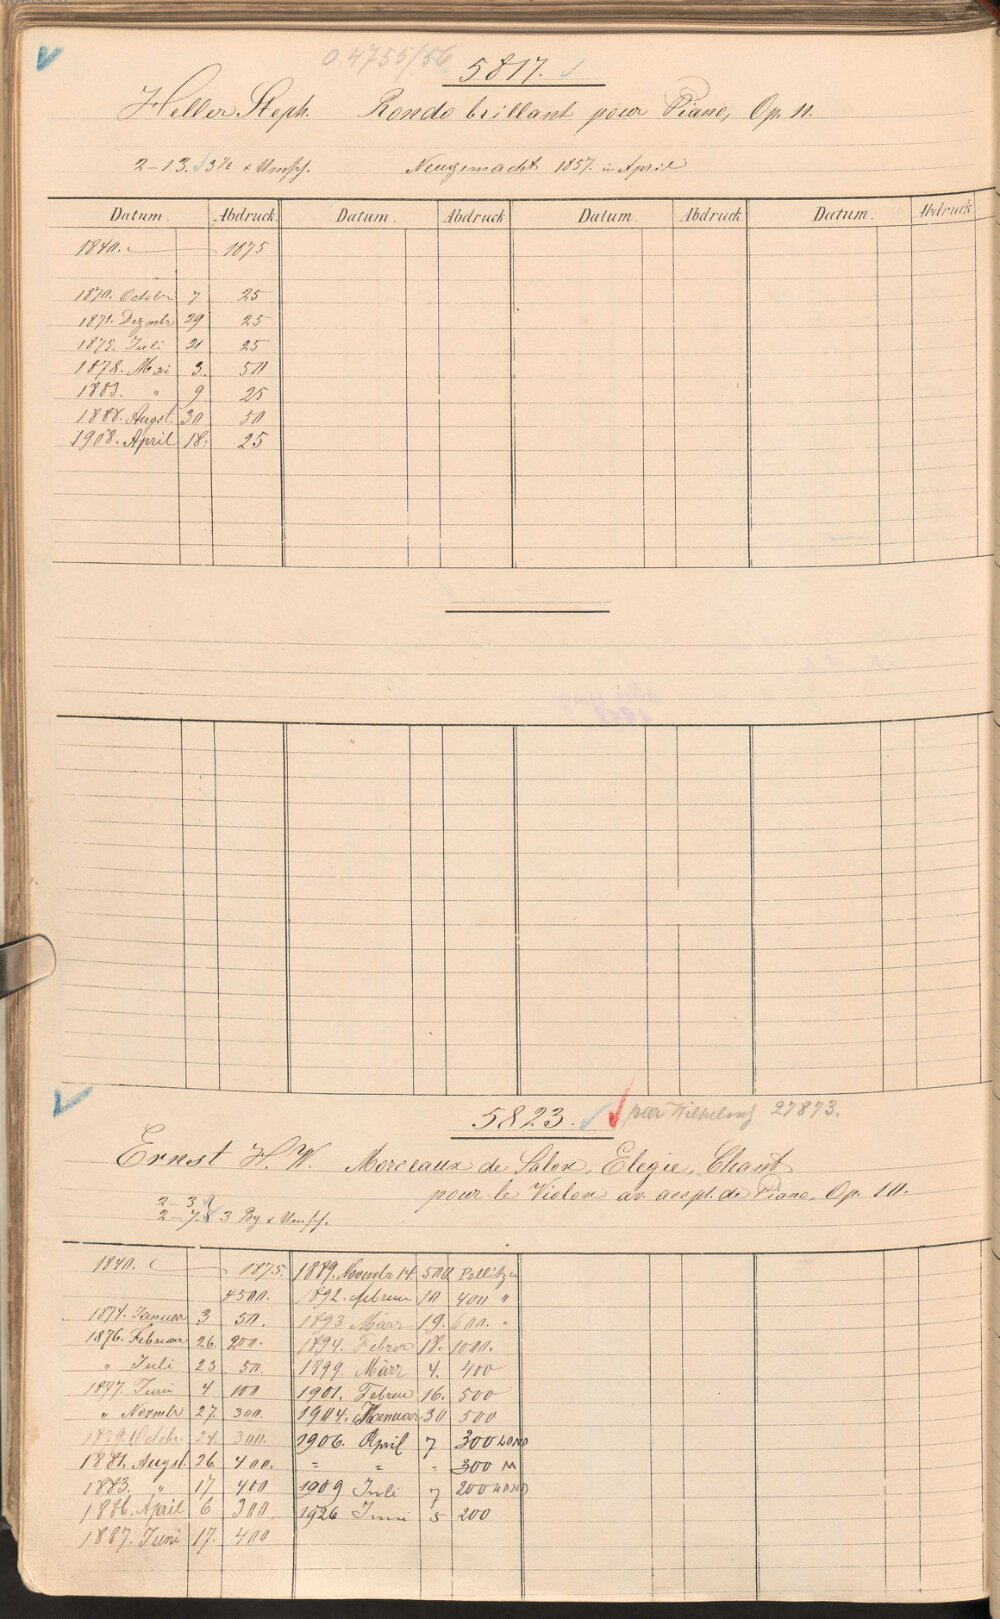 0 4755/56
5817.
Heller Steph. Rondo brillant pour Piano, Op. 11.
2–13. 3½ + Umschl. Neugemacht 1857. in April
Datum. Abdruck. Datum. Abdruck Datum. Abdruck Datum. Abdruck
1840. 1875
1870. Octobr 7 25
1871. Dezmbr 29 25
1875. Juli 21 25
1878. Mai 3. 50
1883. " 9 25
1888. Augst. 30 50
1908. April 18. 25
5823. 27873.
Ernst H. W. Morceaux de Salon, Elegie, Chant
pour le Violon av. accpt. de Piano, Op. 10.
2–3
2–7. 3 Bg + Umschl.
1840. 1875. 1889. Novembr 14. 500 Pollitzer
4500. 1892. Februar 10 400 "
1874. Januar 3 50. 1893 März 19. 600. "
1876. Februar 26. 200. 1894. Februar 18. 1000.
" Juli 23. 50. 1899. März 4. 400
1877. Juni 4 100 1901. Februar 16. 500
" Novmbr 27. 300. 1904. Januar 30 500
Octobr 24. 300. 1906. April 7 300 LOND
1881. Augst. 26 400. " " " 300 M
1883. " 17. 400 1909 Juli 7 200 LOND
1886. April 6 300 1926 Juni 5 200
1887. Juni 17. 400